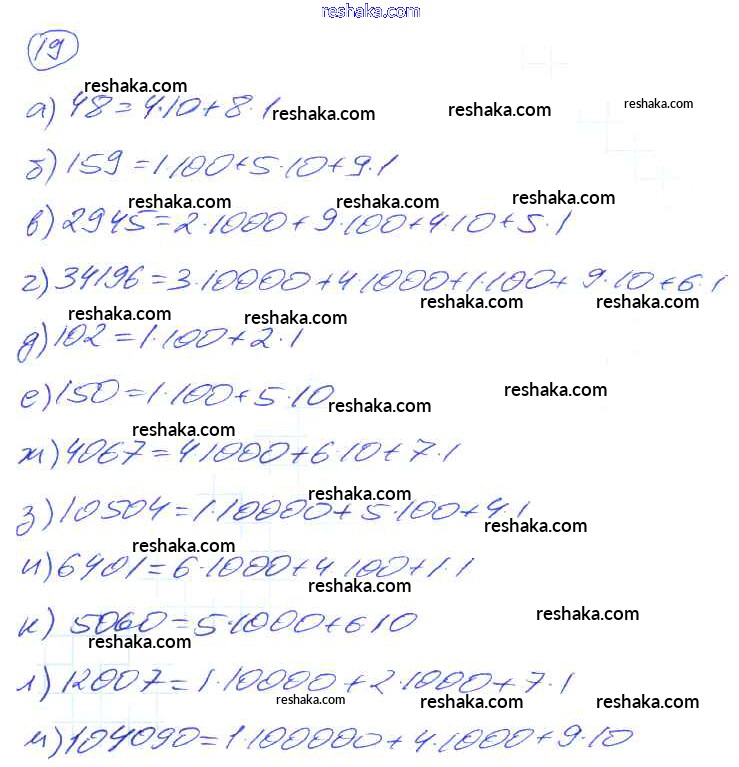 reshaka.com
19
reshaka.com
reshaka.com
а) 48=4·10+8·1
reshaka.com reshaka.com
б) 159=1·100+5·10+9·1
reshaka.com reshaka.com reshaka.com
в) 2945=2·1000+9·100+4·10+5·1
г) 34196=3·10000+4·1000+1·100+ 9·10+6·1
reshaka.com reshaka.com
reshaka.com reshaka.com
д) 102=1·100+2·1
reshaka.com
е) 150=1·100+5·10
reshaka.com
reshaka.com
ж) 4067=4 1000+6·10+7·1
reshaka.com
з) 10504=1·10000+5·100+4·1
reshaka.com
reshaka.com
и) 6401=6·1000+4·100+1·1
reshaka.com
reshaka.com
к) 5060=5·1000+6 10
reshaka.com
л) 12007=1·10000+2·1000+7·1
reshaka.com reshaka.com reshaka.com
м) 104090=1·100000+4·1000+9·10